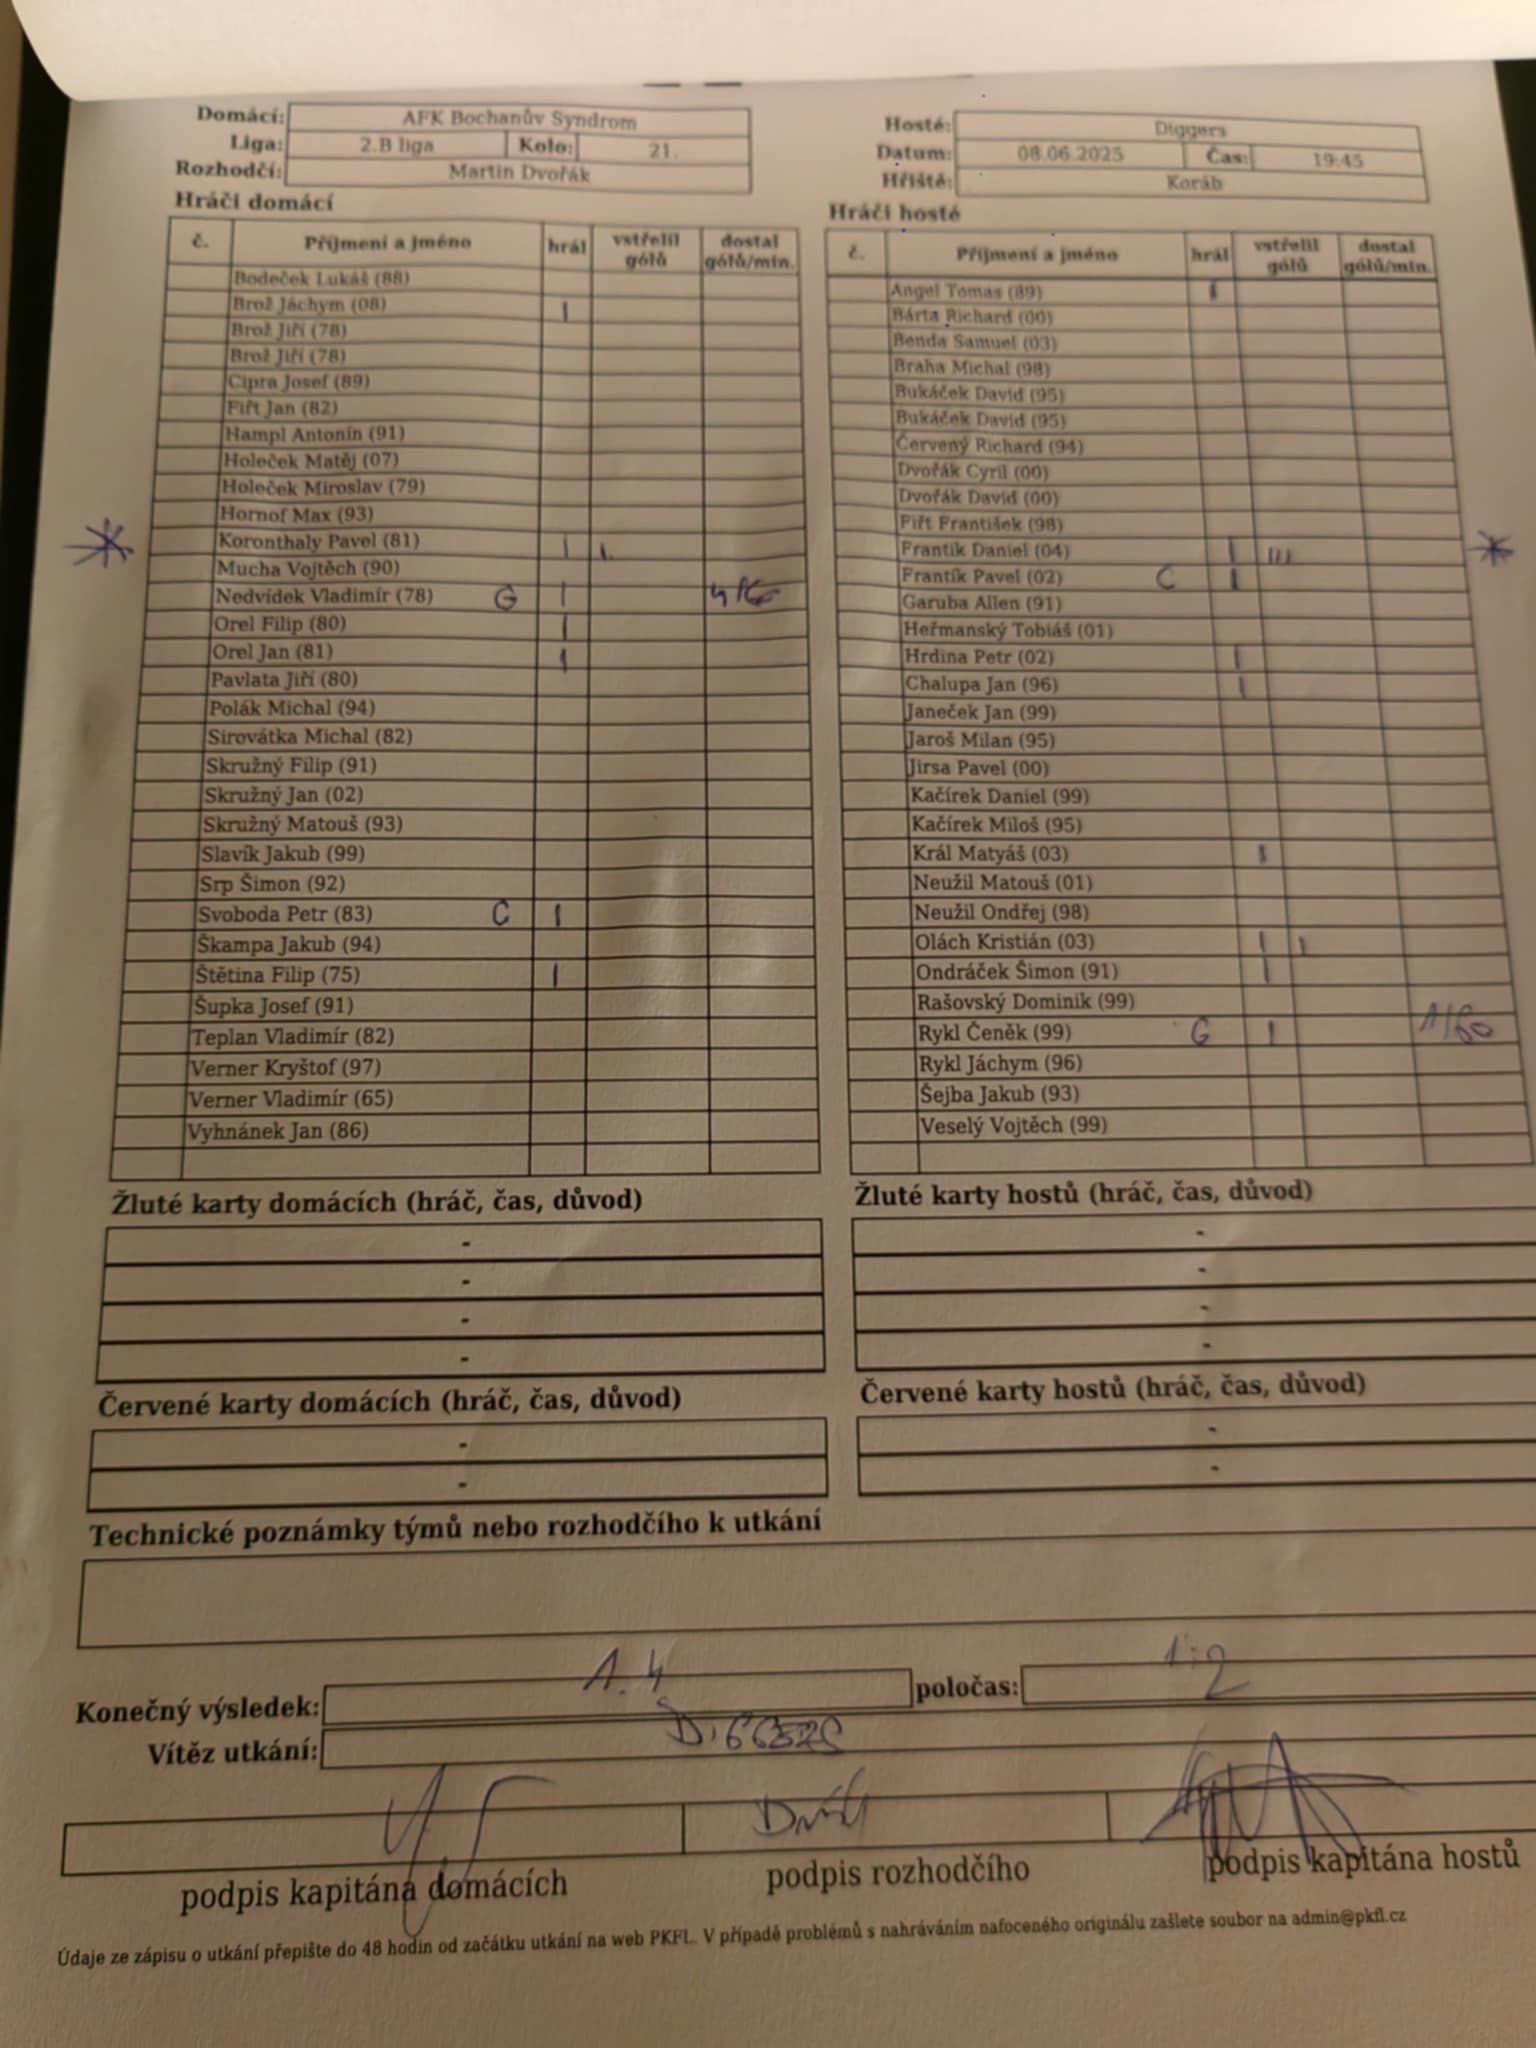 Domácí: AFK Bochanův Syndrom
Liga: 2.B liga Kolo: 21.
Rozhodčí: Martin Dvořák
Hosté: Diggers
Datum: 08.06.2025 Čas: 19:45
Hřiště: Koráb
Hráči domácí
č. Příjmení a jméno hrál vstřelil gólů dostal gólů/min.
Bodeček Lukáš (88)
Brož Jáchym (08) I
Brož Jiří (78)
Brož Jiří (78)
Cipra Josef (89)
Fiřt Jan (82)
Hampl Antonín (91)
Holeček Matěj (07)
Holeček Miroslav (79)
Hornof Max (93)
Koronthaly Pavel (81) I I
Mucha Vojtěch (90)
Nedvídek Vladimír (78) G I
Orel Filip (80) I
Orel Jan (81) I
Pavlata Jiří (80)
Polák Michal (94)
Sirovátka Michal (82)
Skružný Filip (91)
Skružný Jan (02)
Skružný Matouš (93)
Slavík Jakub (99)
Srp Šimon (92)
Svoboda Petr (83) C I
Škampa Jakub (94)
Štětina Filip (75) I
Šupka Josef (91)
Teplan Vladimír (82)
Verner Kryštof (97)
Verner Vladimír (65)
Vyhnánek Jan (86)
Hráči hosté
č. Příjmení a jméno hrál vstřelil gólů dostal gólů/min.
Angel Tomas (89) I
Bárta Richard (00)
Benda Samuel (03)
Braha Michal (98)
Bukáček David (95)
Bukáček David (95)
Červený Richard (94)
Dvořák Cyril (00)
Dvořák David (00)
Fiřt František (98)
Frantík Daniel (04) I III
Frantík Pavel (02) C I
Garuba Allen (91)
Heřmanský Tobiáš (01)
Hrdina Petr (02) I
Chalupa Jan (96) I
Janeček Jan (99)
Jaroš Milan (95)
Jirsa Pavel (00)
Kačírek Daniel (99)
Kačírek Miloš (95)
Král Matyáš (03) I
Neužil Matouš (01)
Neužil Ondřej (98)
Olách Kristián (03) I I
Ondráček Šimon (91) I
Rašovský Dominik (99)
Rykl Čeněk (99) G I 1/60
Rykl Jáchym (96)
Šejba Jakub (93)
Veselý Vojtěch (99)
Žluté karty domácích (hráč, čas, důvod)
-
-
-
-
Žluté karty hostů (hráč, čas, důvod)
-
-
-
-
Červené karty domácích (hráč, čas, důvod)
-
-
Červené karty hostů (hráč, čas, důvod)
-
-
Technické poznámky týmů nebo rozhodčího k utkání
Konečný výsledek: 1:4 poločas: 1:2
Vítěz utkání: DIGGERS
podpis kapitána domácích podpis rozhodčího podpis kapitána hostů
Údaje ze zápisu o utkání přepište do 48 hodin od začátku utkání na web PKFL. V případě problémů s nahráváním nafoceného originálu zašlete soubor na admin@pkfl.cz